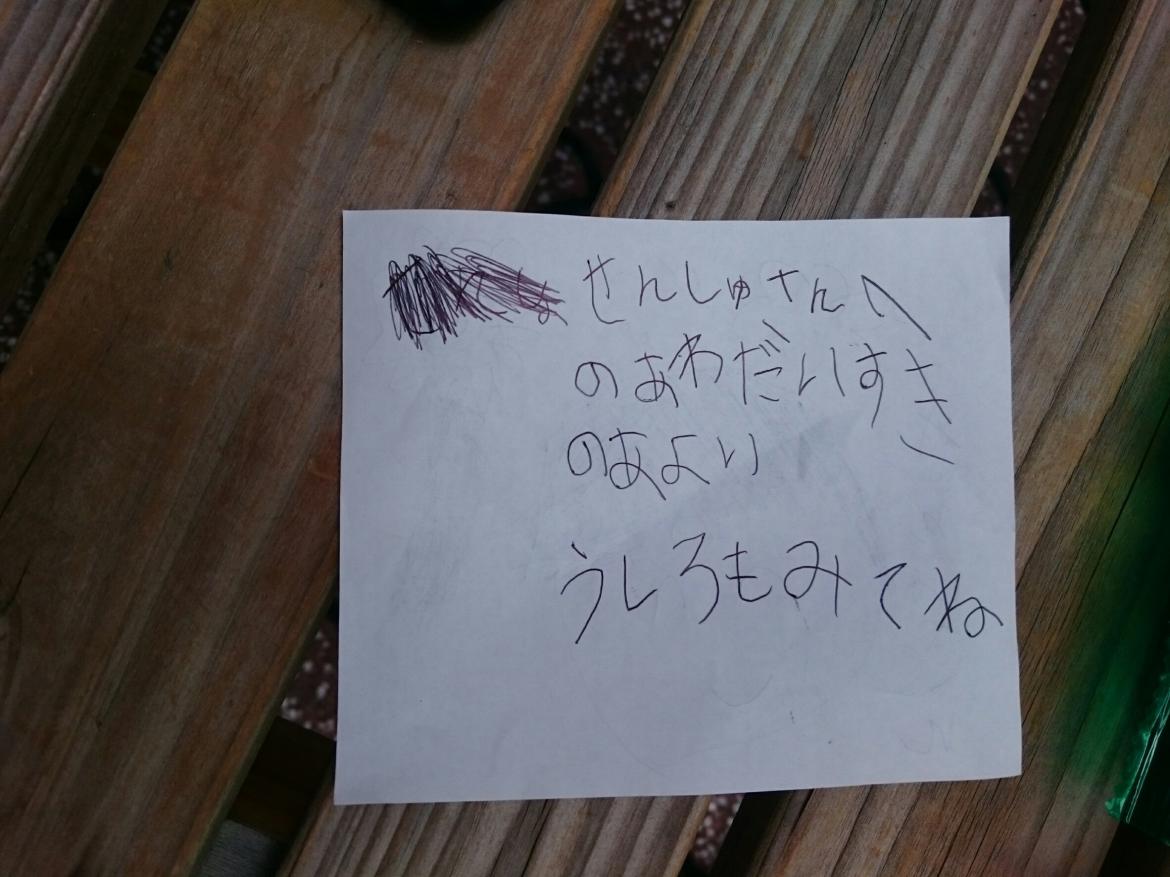 せんしゅさんへ
のあわだいすき
のあより
うしろもみてね